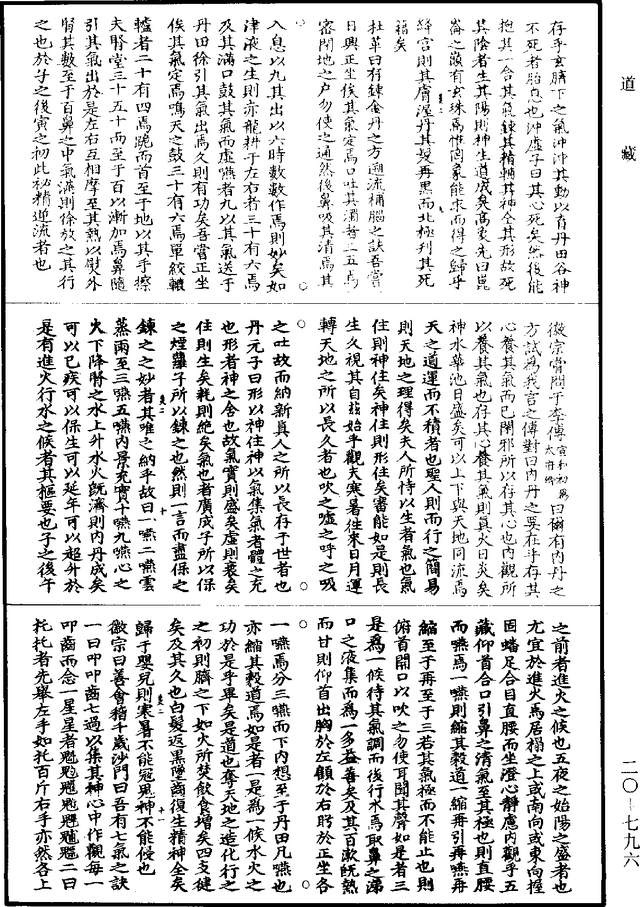 道藏
存乎玄臍下之氣沖沖其動以育丹田谷神
不死者胎息也沖虛子曰其心死矣然後能
抱其一合其氣鍊其精輔其神全其形故死
其陰者生其陽則神生道成矣高象先曰崑
崙之巔有玄珠焉惟罔象能求而得之歸乎
絳宮則其膚渥丹其髮再黑而北極刊其死
籍矣
杜草曰存鍊金丹之方遡流補腦之訣吾嘗
日興正坐俟其氣定焉口吐其濁者三五焉
密閉地之戶勿使之通然後鼻吸其清焉其
入息以九其出以六時數數作焉則妙矣如
津液之生則亦龍耕于左右者三十有六焉
及其滿口鼓其氣而虛嚥者九以其氣送于
丹田徐引其氣出焉久則有功矣吾嘗正坐
俟其氣定焉鳴天之鼓三十有六焉單絞轆
轤者二十有四焉跪而首至于地以其手擦
夫腎堂三十五十而至于百以漸加焉鼻隨
引其氣出於是左右互相摩至其熱以熨外
腎其數至于百鼻之中氣滿則徐放之其行
之也於子之後寅之初此祕精逆流者也
徽宗嘗問于李傳宣和初為太府卿曰爾有內丹之
方試為我言之傳對曰內丹之要在乎存其
心養其氣而已閑邪所以存其心也內觀所
以養其氣也存其心養其氣則真火日炎矣
神水華池日盛矣可以上下與天地同流焉
天之道運而不積者也聖人則而行之簡易
則天地之理得矣夫人所恃以生者氣也氣
住則神住矣神住則形住矣審能如是則長
生久視其自茲始乎觀夫寒暑往來日月運
轉天地之所以長久者也吹之噓之呼之吸
之吐故而納新真人之所以長存于世者也
丹元子曰形以神住神以氣集氣者體之充
也形者神之舍也故氣實則盛矣虛則衰矣
住則生矣耗則絕矣氣也者廣成子所以保
之煙蘿子所以鍊之也然則一言而盡保之
鍊之之妙者其唯之納乎故曰一嚥二嚥雲
蒸雨至三嚥五嚥內景充實十嚥九嚥心之
火下降腎之水上升水火既濟則內丹成矣
可以已疾可以保生可以延年可以超升於
是有進火行水之候者其樞要也子之後午
之前者進火之候也五夜之始陽之盛者也
尤宜於進火焉居榻之上或南向或東向握
固蟠足合目直腰而坐澄心靜慮內觀乎五
藏仰首合口引鼻之清氣至其極也則直腰
而嚥焉一嚥則縮其穀道一縮再引再嚥再
縮至于再至于三若其氣極而不能止也則
俯首開口以吹之勿使耳聞其聲如是者三
是為一候待其氣調而後行水焉取鼻之涕
口之液集而為一多益善矣及其百漱既熱
而甘則仰首出胸於左顧於右盼於正坐各
一嚥焉分三嚥而下內想至于丹田凡嚥也
亦縮其穀道焉如是者一是為一候水火之
功於是乎畢矣是道也奪天地之造化行之
之初則臍之下如火所焚飲食增矣四支健
矣及其久也白髮返黑墮齒復生精神全矣
歸于嬰兒則寒暑不能冦鬼神不能侵也
徽宗曰善會稽千歲沙門曰吾有七氣之訣
一曰叩叩齒七過以集其神心中作觀每一
叩齒而念一星星者魁𩲃䰢魓魒二曰
托托者先舉左手如托百斤右手亦然各上
二〇—七九六